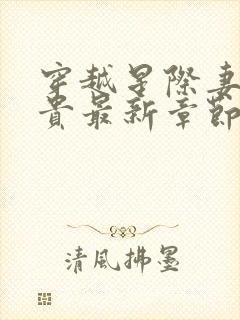 穿越星際妻
貴最新章節
清風拂墨